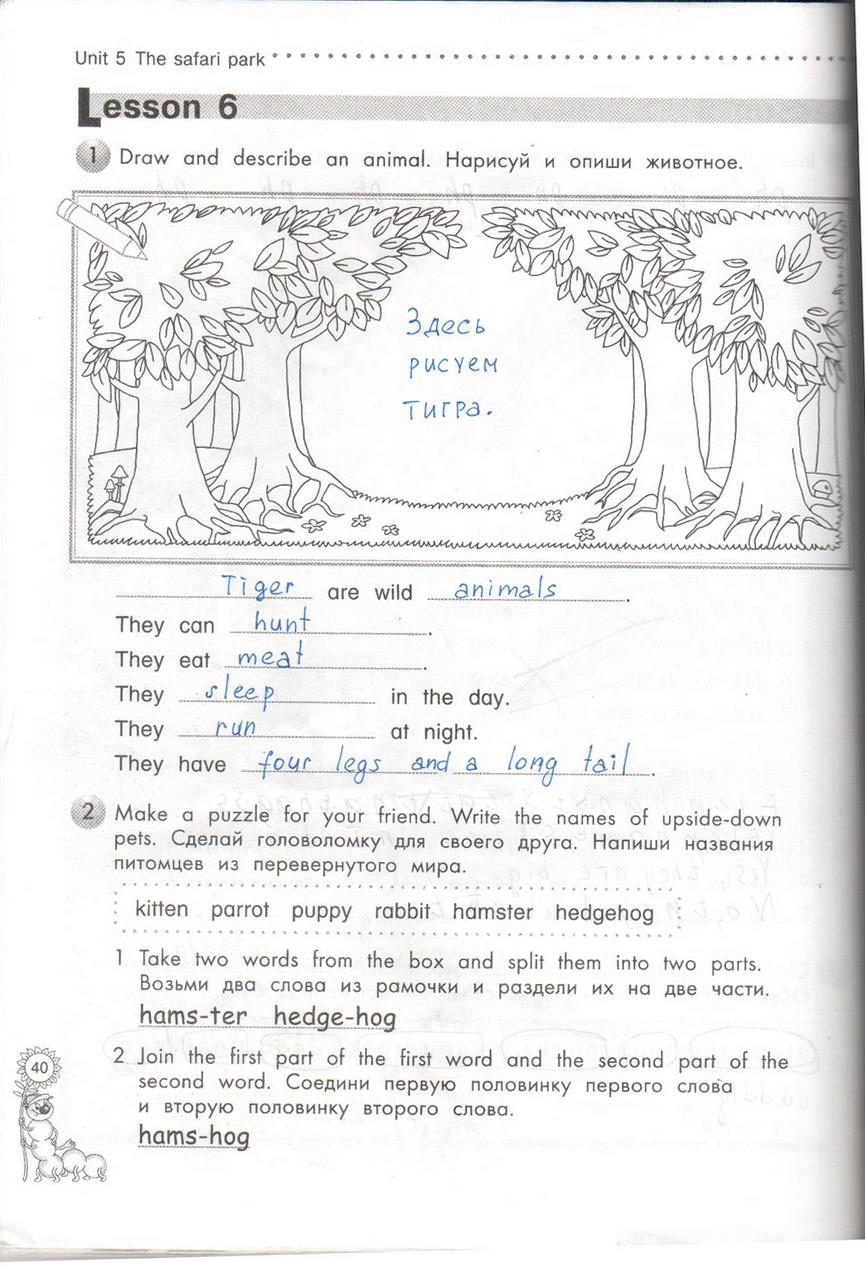 Unit 5 The safari park
Lesson 6
1 Draw and describe an animal. Нарисуй и опиши животное.
Здесь
рисуем
тигра.
Tiger are wild animals.
They can hunt.
They eat meat.
They sleep in the day.
They run at night.
They have four legs and a long tail.
2 Make a puzzle for your friend. Write the names of upside-down
pets. Сделай головоломку для своего друга. Напиши названия
питомцев из перевернутого мира.
kitten parrot puppy rabbit hamster hedgehog
1 Take two words from the box and split them into two parts.
Возьми два слова из рамочки и раздели их на две части.
hams-ter hedge-hog
2 Join the first part of the first word and the second part of the
second word. Соедини первую половинку первого слова
и вторую половинку второго слова.
hams-hog
40